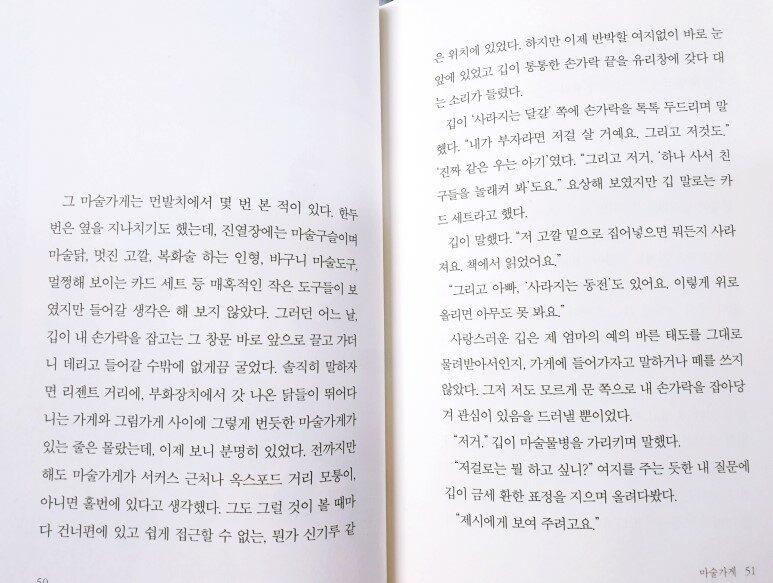 그 마술가게는 먼발치에서 몇 번 본 적이 있다. 한두
번은 옆을 지나치기도 했는데, 진열장에는 마술구슬이며
마술닭, 멋진 고깔, 복화술 하는 인형, 바구니 마술도구,
멀쩡해 보이는 카드 세트 등 매혹적인 작은 도구들이 보
였지만 들어갈 생각은 해 보지 않았다. 그러던 어느 날,
깁이 내 손가락을 잡고는 그 창문 바로 앞으로 끌고 가더
니 데리고 들어갈 수밖에 없게끔 굴었다. 솔직히 말하자
면 리젠트 거리에, 부화장치에서 갓 나온 닭들이 뛰어다
니는 가게와 그림가게 사이에 그렇게 번듯한 마술가게가
있는 줄은 몰랐는데, 이제 보니 분명히 있었다. 전까지만
해도 마술가게가 서커스 근처나 옥스포드 거리 모퉁이,
아니면 홀번에 있다고 생각했다. 그도 그럴 것이 볼 때마
다 건너편에 있고 쉽게 접근할 수 없는, 뭔가 신기루 같
50
은 위치에 있었다. 하지만 이제 반박할 여지없이 바로 눈
앞에 있었고 깁이 통통한 손가락 끝을 유리창에 갖다 대
는 소리가 들렸다.
깁이 ‘사라지는 달걀’ 쪽에 손가락을 톡톡 두드리며 말
했다. “내가 부자라면 저걸 살 거예요. 그리고 저것도.”
‘진짜 같은 우는 아기’였다. “그리고 저거, ‘하나 사서 친
구들을 놀래켜 봐’도요.” 요상해 보였지만 깁 말로는 카
드 세트라고 했다.
깁이 말했다. “저 고깔 밑으로 집어넣으면 뭐든지 사라
져요. 책에서 읽었어요.”
“그리고 아빠, ‘사라지는 동전’도 있어요. 이렇게 위로
올리면 아무도 못 봐요.”
사랑스러운 깁은 제 엄마의 예의 바른 태도를 그대로
물려받아서인지, 가게에 들어가자고 말하거나 떼를 쓰지
않았다. 그저 저도 모르게 문 쪽으로 내 손가락을 잡아당
겨 관심이 있음을 드러낼 뿐이었다.
“저거,” 깁이 마술물병을 가리키며 말했다.
“저걸로는 뭘 하고 싶니?” 여지를 주는 듯한 내 질문에
깁이 금세 환한 표정을 지으며 올려다봤다.
“제시에게 보여 주려고요.”
마술가게 51